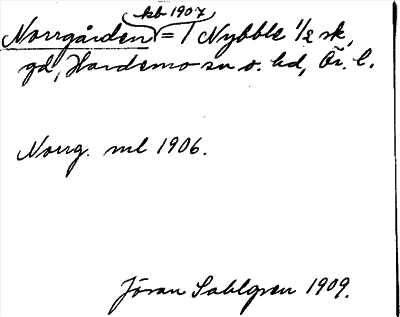 kb 1907
Norrgården (= / Nybble 1/2 sk,
gd, Hardemo sn o. hd, Ör. l.
Norrg. ml 1906.
Jöran Sahlgren 1909.